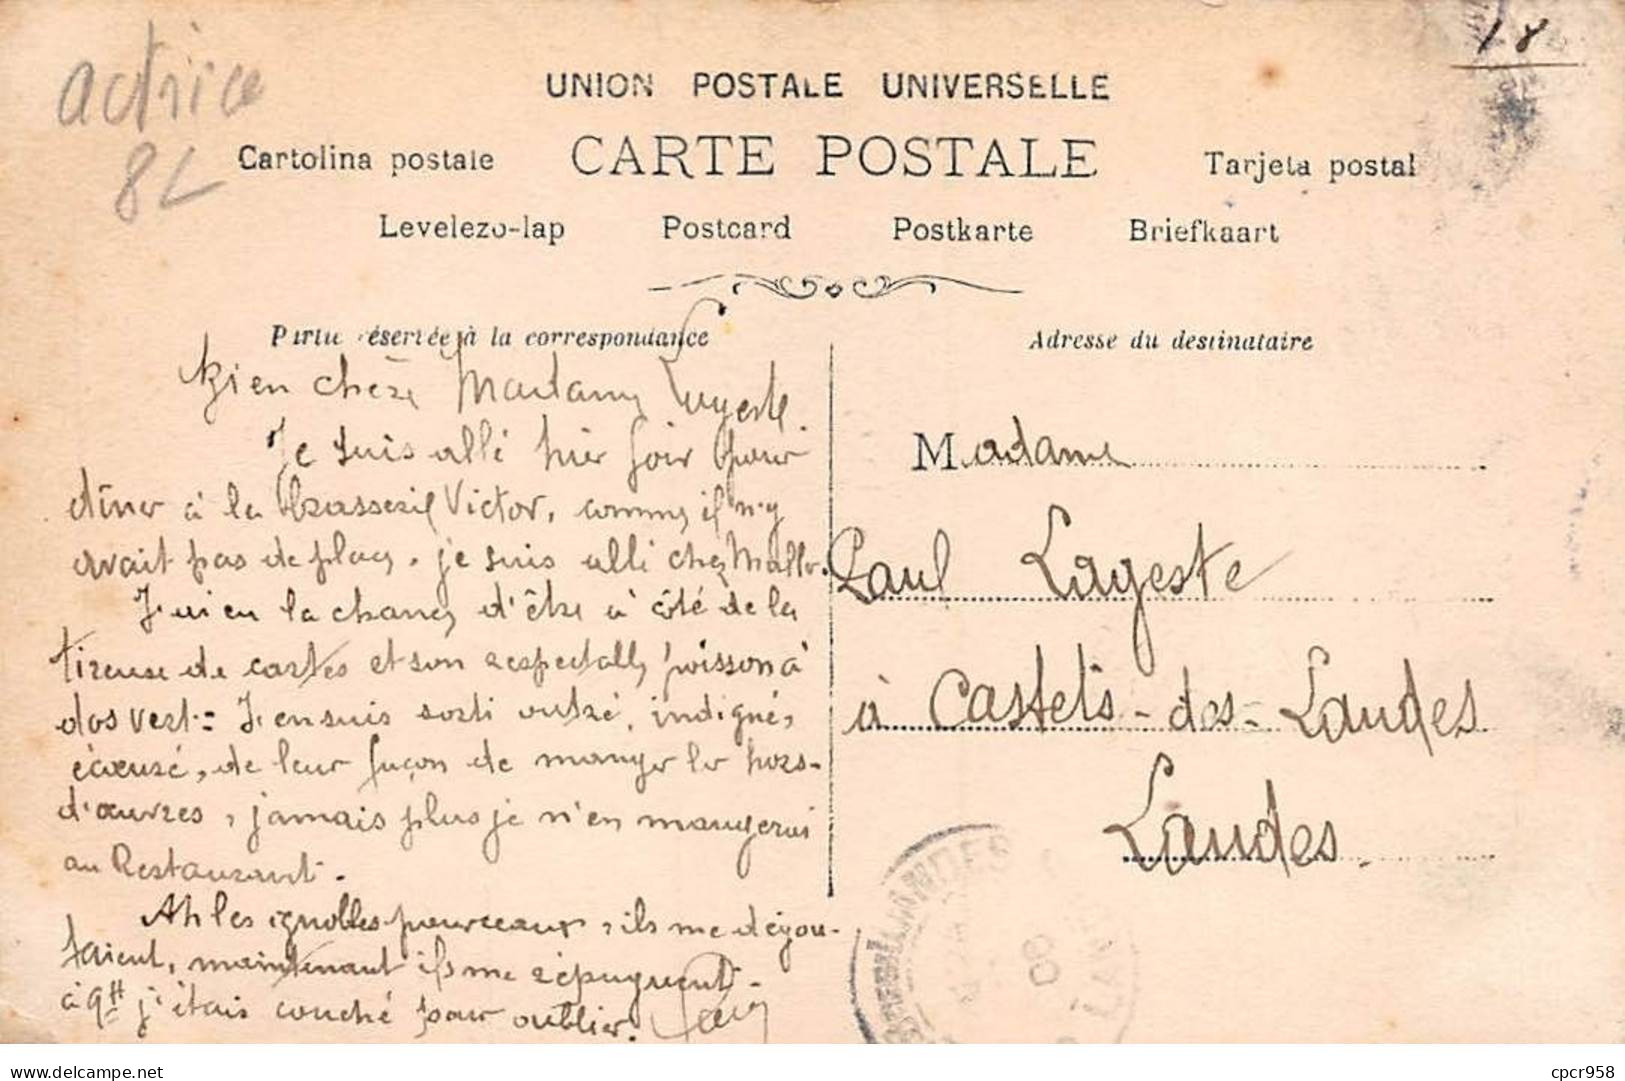 actrice
8L
18
UNION POSTALE UNIVERSELLE
Cartolina postale CARTE POSTALE Tarjeta postal
Levelezo-lap Postcard Postkarte Briefkaart
Partie réservée à la correspondance
Adresse du destinataire
Bien chère Madame Lageste.
Je suis allé hier soir pour
dîner à la Brasserie Victor, comme il n'y
avait pas de place, je suis allé chez Mallo.
J'ai eu la chance d'être à côté de la
tireuse de cartes et son respectable poisson à
dos vert = J'en suis sorti outré, indigné,
écœuré, de leur façon de manger les hors-
d'œuvres, jamais plus je n'en mangerai
au Restaurant.
Ah les ignobles pourceaux, ils me dégou-
taient, maintenant ils me répugnent.
à 9H j'étais couché pour oublier.
Madame
Paul Lageste
à Castets-des-Landes
Landes.
LANDES
08
cpcr958.delcampe.net
cpcr958